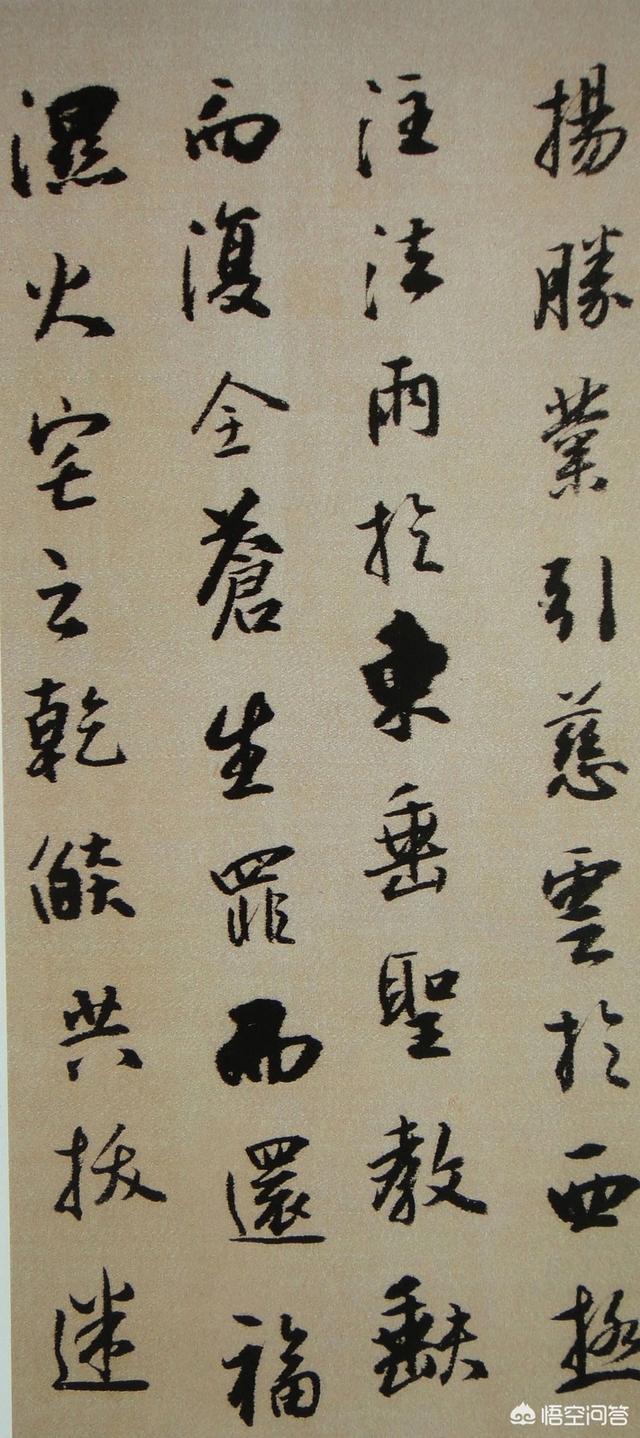 揚勝業引慈雲於西極
注法雨於東垂聖教缺
而復全蒼生罪而還福
濕火宅之乾燄共拔迷
悟空问答